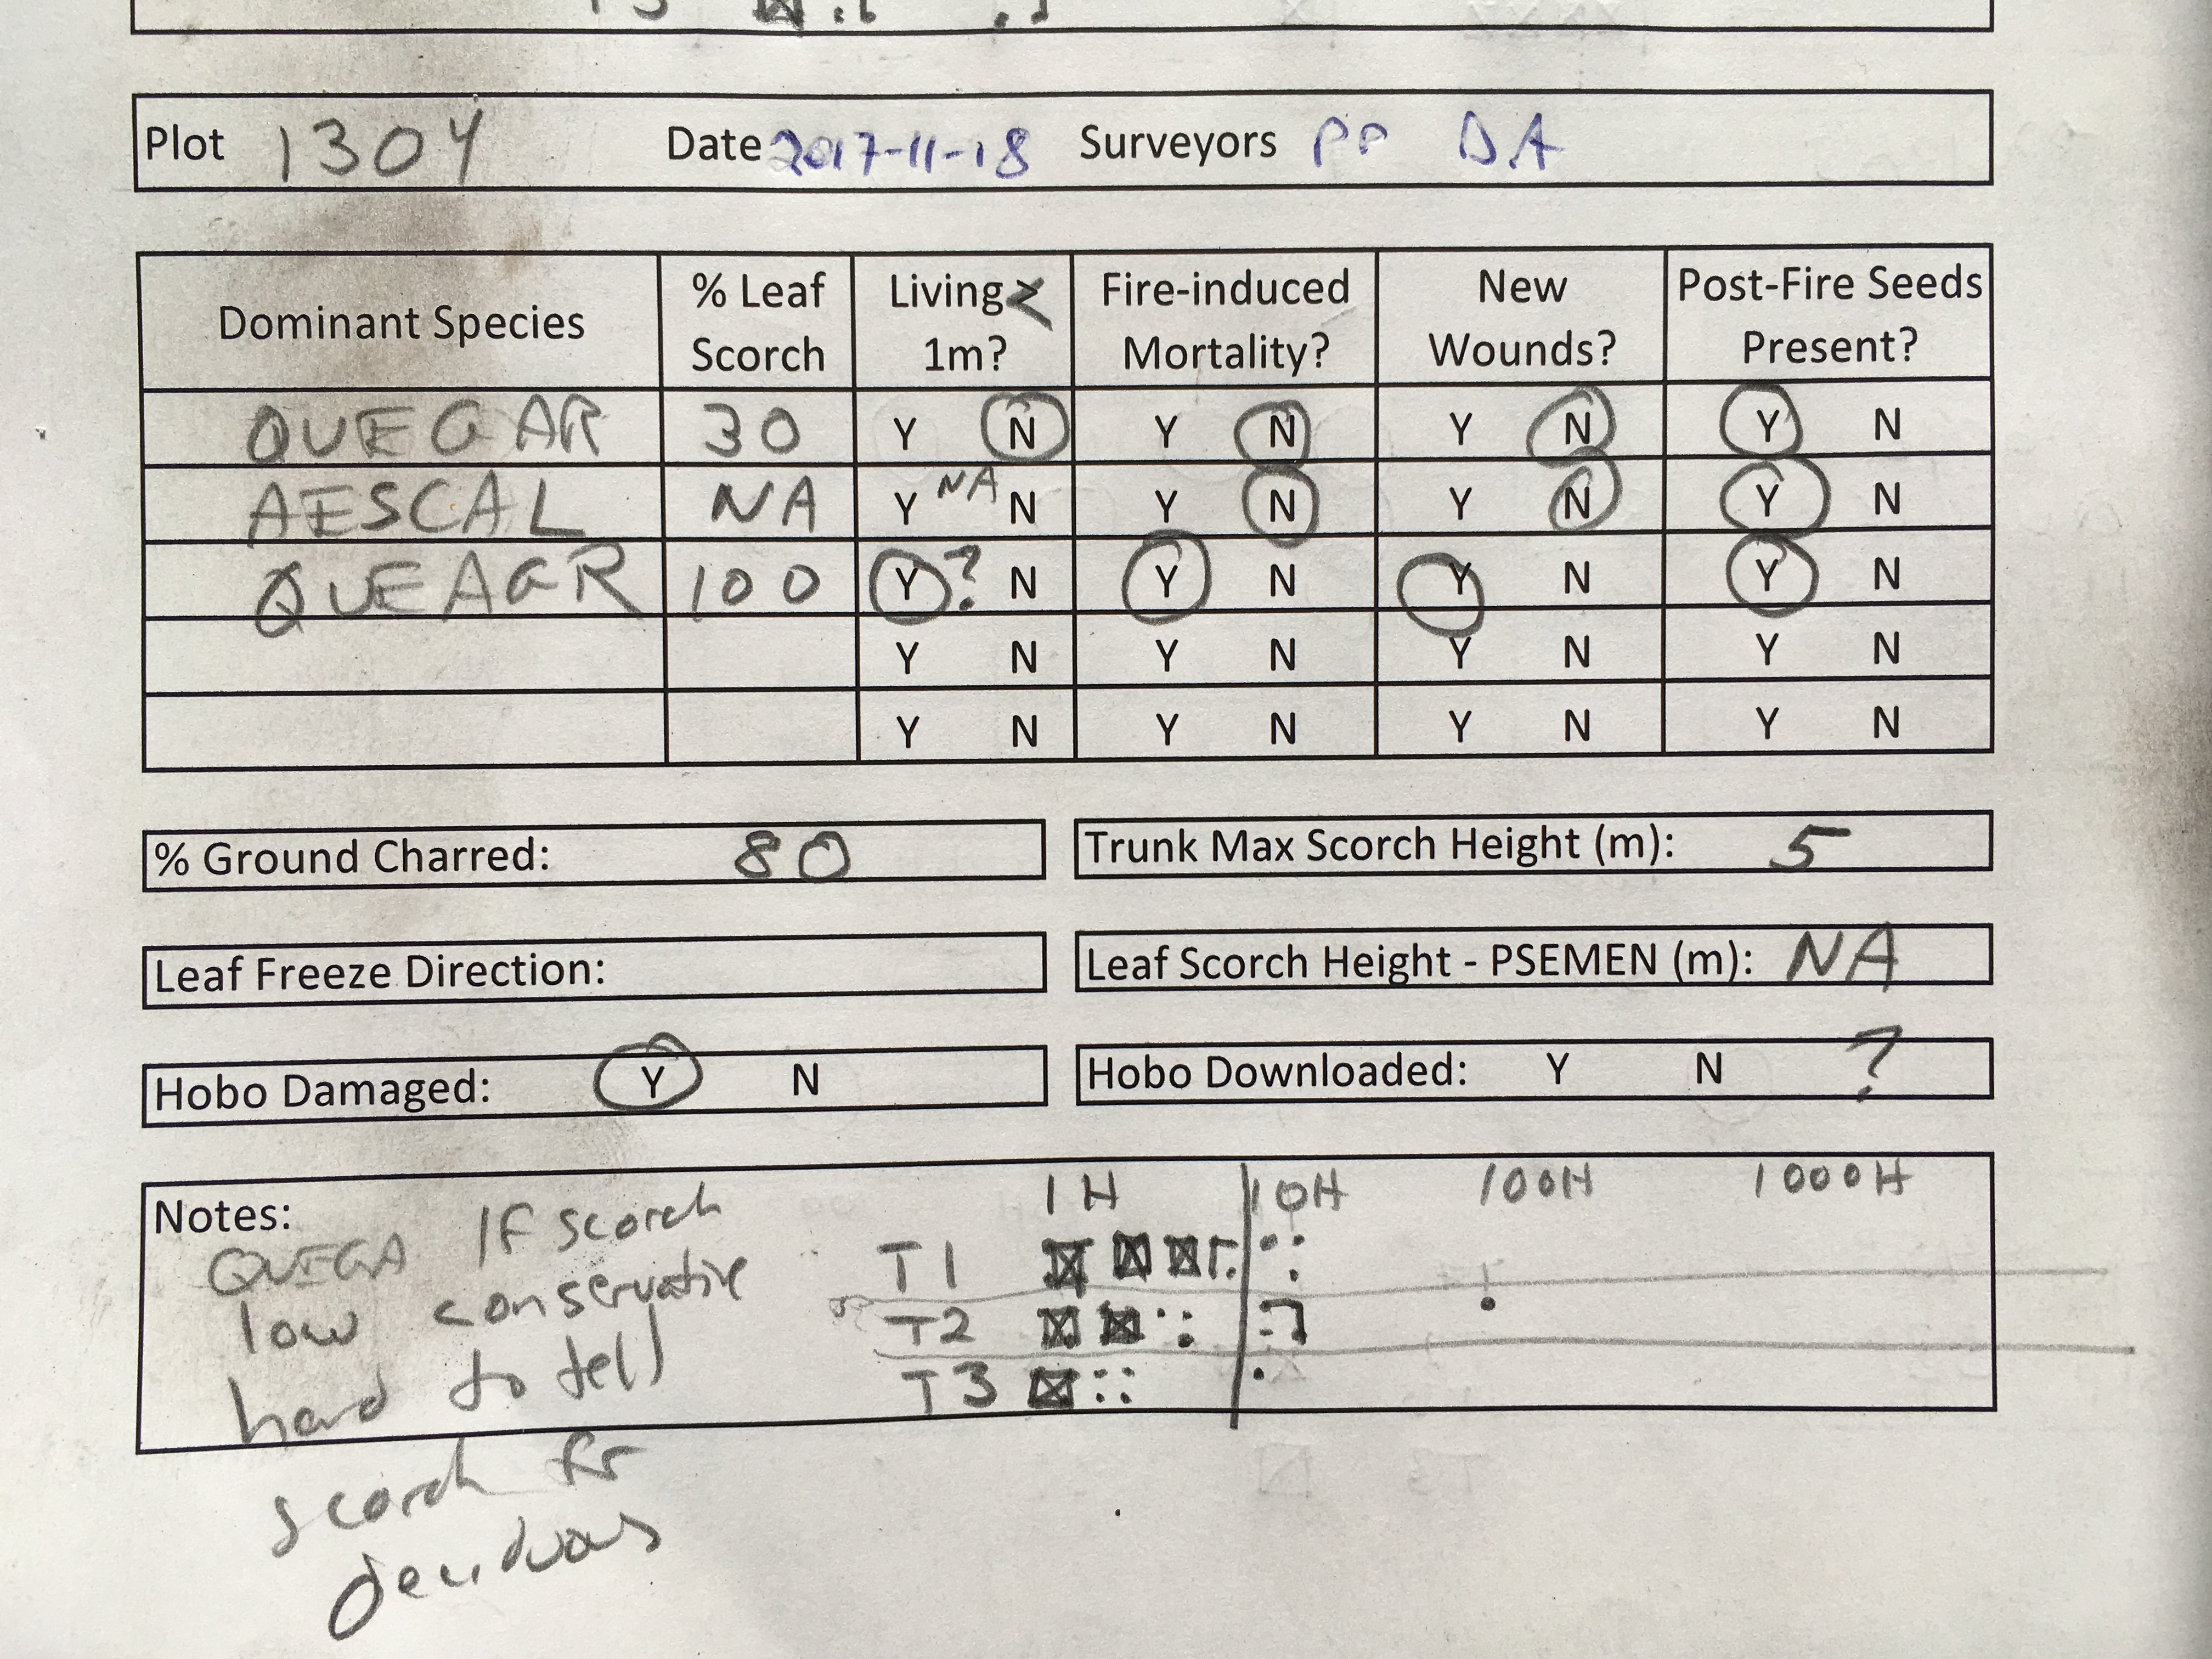 Plot 1304 Date 2017-11-18 Surveyors PP DA
Dominant Species % Leaf Scorch Living < 1m? Fire-induced Mortality? New Wounds? Post-Fire Seeds Present?
QUEGAR 30 Y N Y N Y N Y N
AESCAL NA Y NA N Y N Y N Y N
QUEAGR 100 Y? N Y N Y N Y N
Y N Y N Y N Y N
Y N Y N Y N Y N
% Ground Charred: 80 Trunk Max Scorch Height (m): 5
Leaf Freeze Direction: Leaf Scorch Height - PSEMEN (m): NA
Hobo Damaged: Y N Hobo Downloaded: Y N ?
Notes: 1H 10H 100H 1000H
QUEGA lf scorch T1
low conservative T2
hard to tell T3
scorch for
deciduous